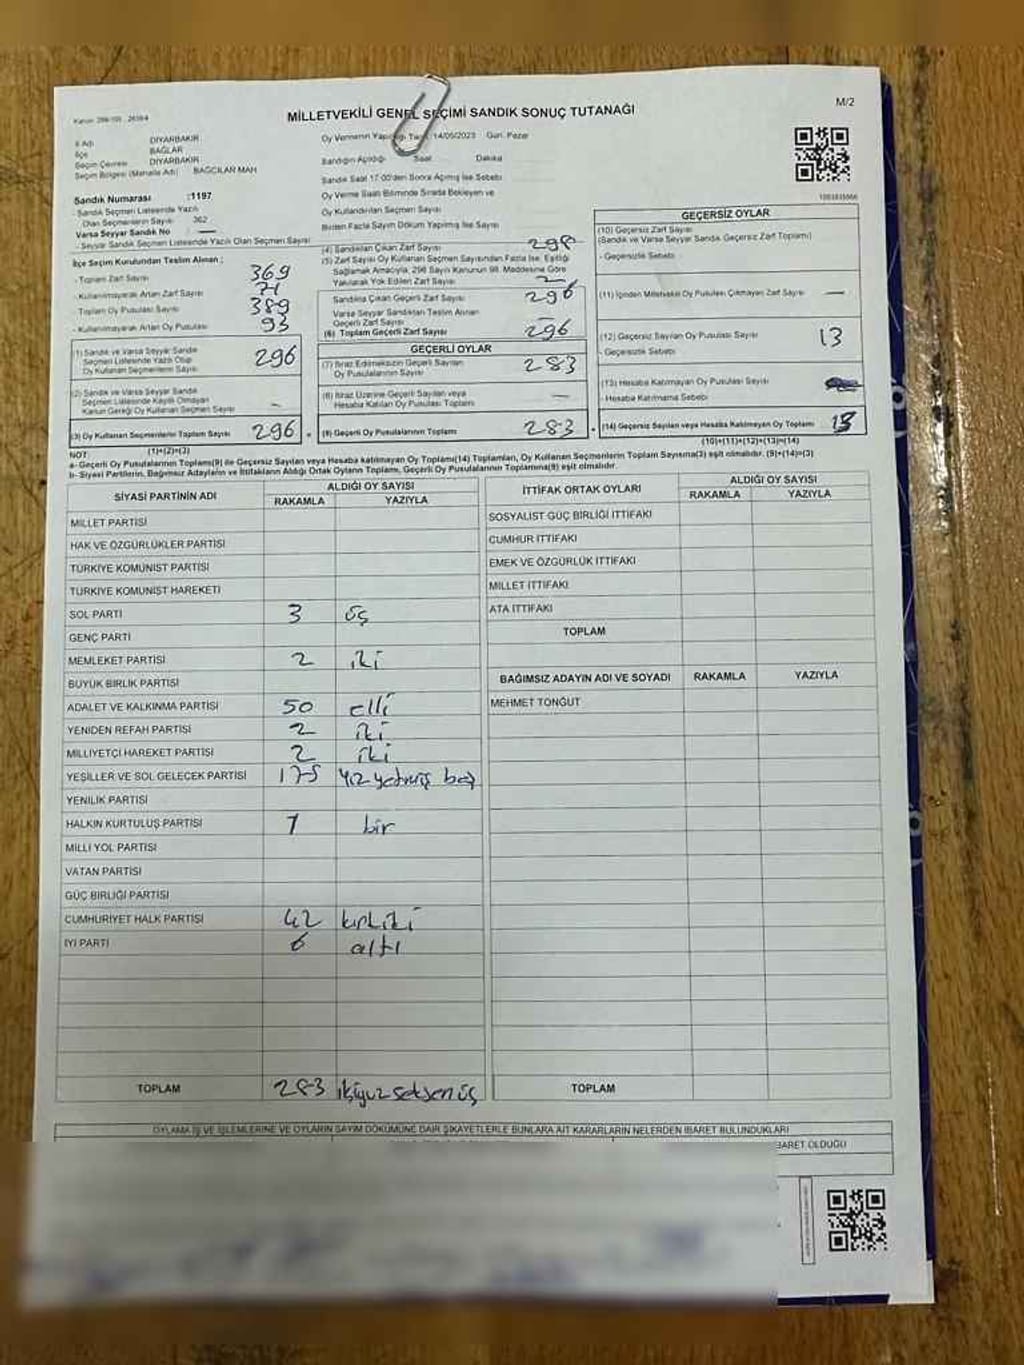 MİLLETVEKİLİ GENEL SEÇİMİ SANDIK SONUÇ TUTANAĞI
M/2
İl Adı DİYARBAKIR
İlçe BAĞLAR
Seçim Çevresi DİYARBAKIR
Seçim Bölgesi (Mahalle Adı) BAĞCILAR MAH
Oy Vermenin Yapıldığı Tarih 14/05/2023 Gün: Pazar
Sandığın Açıldığı Saat Dakika
Sandık Saat 17:00'den Sonra Açılmış İse Sebebi
Oy Verme Saati Bitiminde Sırada Bekleyen ve
Oy Kullandırılan Seçmen Sayısı
Birden Fazla Sayım Döküm Yapılmış İse Sayısı
Sandık Numarası :1197
- Sandık Seçmen Listesinde Yazılı
Olan Seçmenlerin Sayısı 362
Varsa Seyyar Sandık No —
- Seyyar Sandık Seçmen Listesinde Yazılı Olan Seçmen Sayısı
İlçe Seçim Kurulundan Teslim Alınan ;
- Toplam Zarf Sayısı 369
- Kullanılmayarak Artan Zarf Sayısı 71
- Toplam Oy Pusulası Sayısı 389
- Kullanılmayarak Artan Oy Pusulası 93
(1) Sandık ve Varsa Seyyar Sandık
Seçmen Listesinde Yazılı Olup
Oy Kullanan Seçmenlerin Sayısı 296
(2) Sandık ve Varsa Seyyar Sandık
Seçmen Listesinde Kayıtlı Olmayan
Kanun Gereği Oy Kullanan Seçmen Sayısı -
(3) Oy Kullanan Seçmenlerin Toplam Sayısı 296
(1)+(2)=(3)
(4) Sandıktan Çıkan Zarf Sayısı 298
(5) Zarf Sayısı Oy Kullanan Seçmen Sayısından Fazla İse, Eşitliği
Sağlamak Amacıyla, 298 Sayılı Kanunun 98. Maddesine Göre
Yakılarak Yok Edilen Zarf Sayısı 2
Sandıkta Çıkan Geçerli Zarf Sayısı 296
Varsa Seyyar Sandıktan Teslim Alınan
Geçerli Zarf Sayısı —
(6) Toplam Geçerli Zarf Sayısı 296
GEÇERLİ OYLAR
(7) İtiraz Edilmeksizin Geçerli Sayılan
Oy Pusulalarının Sayısı 283
(8) İtiraz Üzerine Geçerli Sayılan veya
Hesaba Katılan Oy Pusulası Toplamı —
(9) Geçerli Oy Pusulalarının Toplamı 283
GEÇERSİZ OYLAR
(10) Geçersiz Zarf Sayısı
(Sandık ve Varsa Seyyar Sandık Geçersiz Zarf Toplamı)
- Geçersizlik Sebebi
(11) İçinden Milletvekili Oy Pusulası Çıkmayan Zarf Sayısı —
(12) Geçersiz Sayılan Oy Pusulası Sayısı 13
- Geçersizlik Sebebi
(13) Hesaba Katılmayan Oy Pusulası Sayısı
- Hesaba Katılmama Sebebi
(14) Geçersiz Sayılan veya Hesaba Katılmayan Oy Toplamı 13
(10)+(11)+(12)+(13)=(14)
NOT:
a- Geçerli Oy Pusulalarının Toplamı(9) ile Geçersiz Sayılan veya Hesaba Katılmayan Oy Toplamı(14) Toplamları, Oy Kullanan Seçmenlerin Toplam Sayısına(3) eşit olmalıdır. (9)+(14)=(3)
b- Siyasi Partilerin, Bağımsız Adayların ve İttifakların Aldığı Ortak Oyların Toplamı, Geçerli Oy Pusulalarının Toplamına(9) eşit olmalıdır.
SİYASİ PARTİNİN ADI ALDIĞI OY SAYISI
RAKAMLA YAZIYLA
MİLLET PARTİSİ
HAK VE ÖZGÜRLÜKLER PARTİSİ
TÜRKİYE KOMÜNİST PARTİSİ
TÜRKİYE KOMÜNİST HAREKETİ
SOL PARTİ 3 üç
GENÇ PARTİ
MEMLEKET PARTİSİ 2 iki
BÜYÜK BİRLİK PARTİSİ
ADALET VE KALKINMA PARTİSİ 50 elli
YENİDEN REFAH PARTİSİ 2 iki
MİLLİYETÇİ HAREKET PARTİSİ 2 iki
YEŞİLLER VE SOL GELECEK PARTİSİ 175 yüz yetmiş beş
YENİLİK PARTİSİ
HALKIN KURTULUŞ PARTİSİ 1 bir
MİLLİ YOL PARTİSİ
VATAN PARTİSİ
GÜÇ BİRLİĞİ PARTİSİ
CUMHURİYET HALK PARTİSİ 42 kırkiki
İYİ PARTİ 6 altı
TOPLAM 283 ikiyüz seksen üç
İTTİFAK ORTAK OYLARI ALDIĞI OY SAYISI
RAKAMLA YAZIYLA
SOSYALİST GÜÇ BİRLİĞİ İTTİFAKI
CUMHUR İTTİFAKI
EMEK VE ÖZGÜRLÜK İTTİFAKI
MİLLET İTTİFAKI
ATA İTTİFAKI
TOPLAM
BAĞIMSIZ ADAYIN ADI VE SOYADI RAKAMLA YAZIYLA
MEHMET TONĞUT
TOPLAM
OYLAMA İŞ VE İŞLEMLERİNE VE OYLARIN SAYIM DÖKÜMÜNE DAİR ŞİKAYETLERLE BUNLARA AİT KARARLARIN NELERDEN İBARET BULUNDUKLARI
BARET OLDUĞU